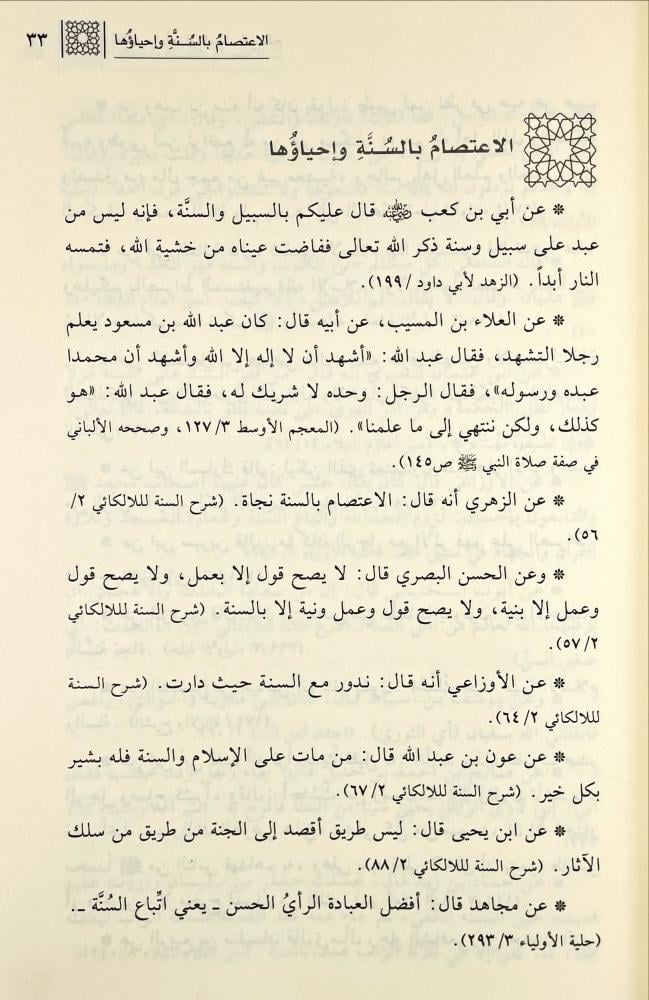 الاعتصامُ بالسُنَّةِ وإحياؤُها ٣٣
الاعتصامُ بالسُنَّةِ وإحياؤُها
* عن أبي بن كعب رضي الله عنه قال عليكم بالسبيل والسنَّة، فإنه ليس من
عبد على سبيل وسنة ذكر الله تعالى ففاضت عيناه من خشية الله، فتمسه
النار أبداً. (الزهد لأبي داود /١٩٩).
* عن العلاء بن المسيب، عن أبيه قال: كان عبد الله بن مسعود يعلم
رجلا التشهد، فقال عبد الله: «أشهد أن لا إله إلا الله وأشهد أن محمدا
عبده ورسوله»، فقال الرجل: وحده لا شريك له، فقال عبد الله: «هو
كذلك، ولكن ننتهي إلى ما علمنا». (المعجم الأوسط ١٢٧/٣، وصححه الألباني
في صفة صلاة النبي ﷺ ص١٤٥).
* عن الزهري أنه قال: الاعتصام بالسنة نجاة. (شرح السنة لللالكائي ٢/
٥٦).
* وعن الحسن البصري قال: لا يصح قول إلا بعمل، ولا يصح قول
وعمل إلا بنية، ولا يصح قول وعمل ونية إلا بالسنة. (شرح السنة لللالكائي
٥٧/٢).
* عن الأوزاعي أنه قال: ندور مع السنة حيث دارت. (شرح السنة
لللالكائي ٦٤/٢).
* عن عون بن عبد الله قال: من مات على الإسلام والسنة فله بشير
بكل خير. (شرح السنة لللالكائي ٦٧/٢).
* عن ابن يحيى قال: ليس طريق أقصد إلى الجنة من طريق من سلك
الآثار. (شرح السنة لللالكائي ٨٨/٢).
* عن مجاهد قال: أفضل العبادة الرأيُ الحسن ـ يعني اتِّباع السُنَّة ـ.
(حلية الأولياء ٢٩٣/٣).